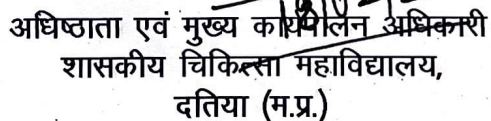 अधिष्ठाता एवं मुख्य कार्यपालन अधिकारी
शासकीय चिकित्सा महाविद्यालय,
दतिया (म.प्र.)